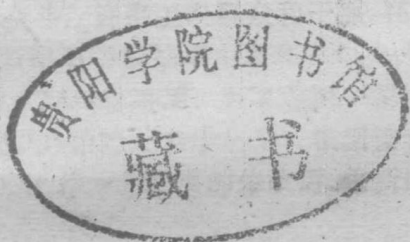 贵阳学院图书馆
藏书